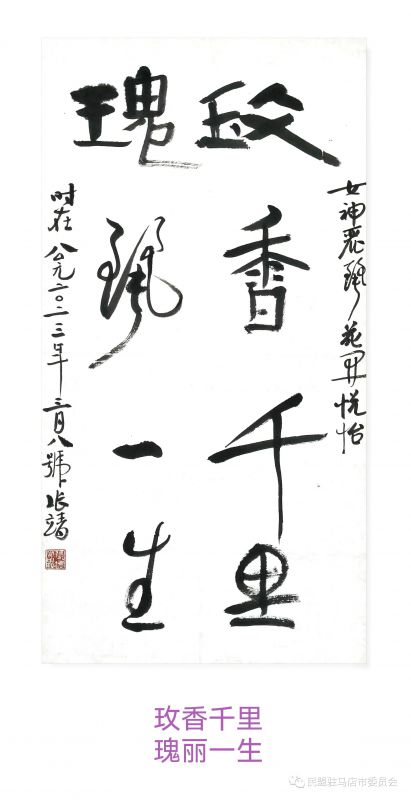 女神麗珮花開悦怡
玫香千里
瑰珮一生
时在公元二〇二三年三月八號张靖
玫香千里
瑰丽一生
民盟驻马店市委员会